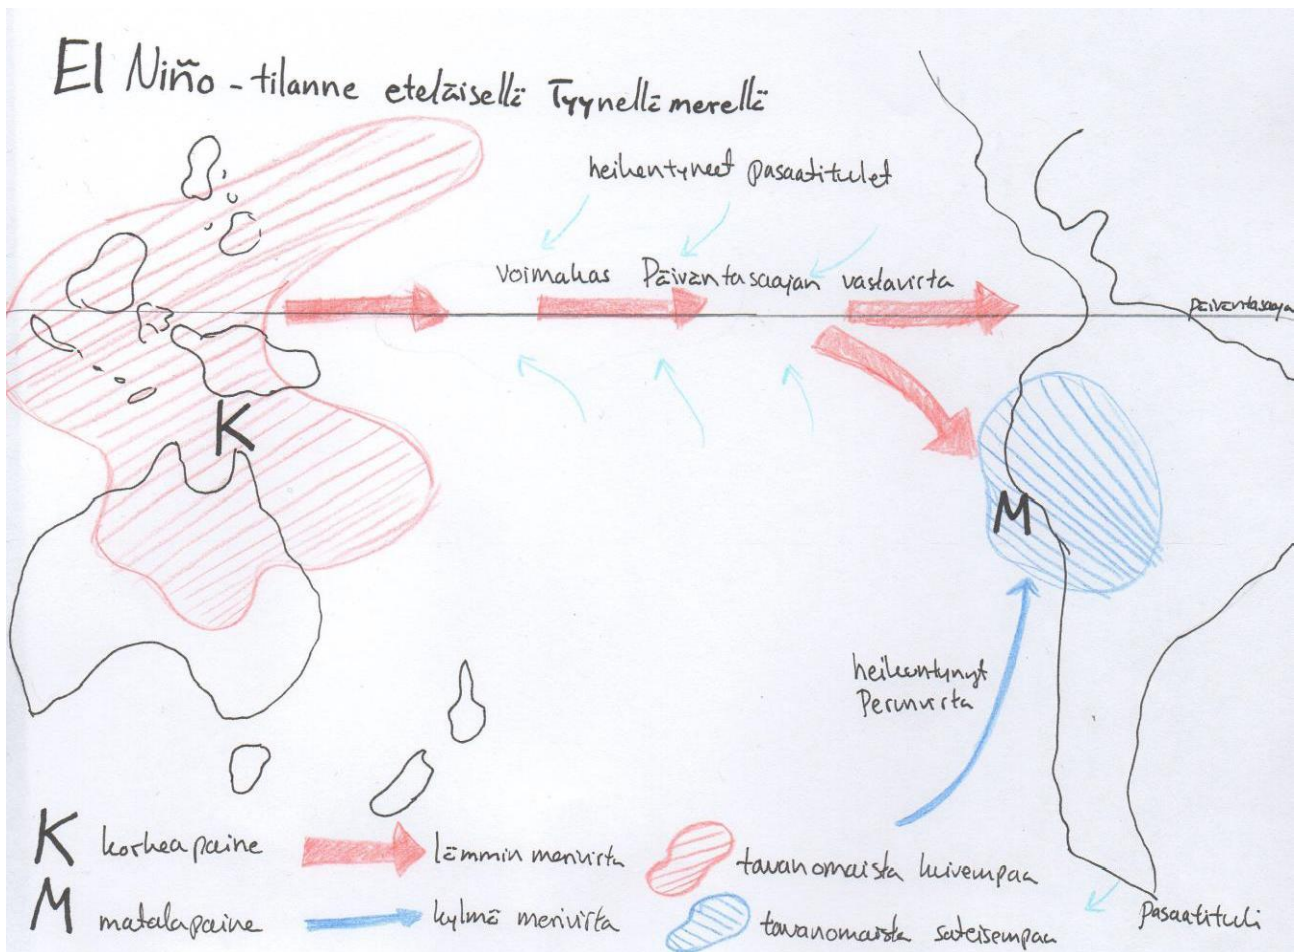 El Niño - tilanne eteläisellä Tyynellä merellä
heikentyneet pasaatituulet
voimakas Päiväntasaajan vastavirta
päiväntasaaja
K
M
heikentynyt
Perunvirta
K korkeapaine
lämmin merivirta
tavanomaista kuivempaa
M matalapaine
kylmä merivirta
tavanomaista sateisempaa
pasaatituuli